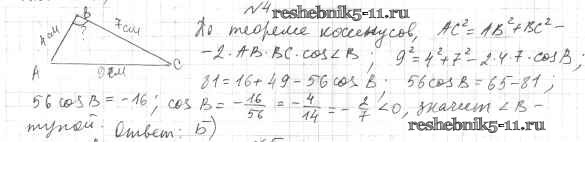 №4
reshebnik5-11.ru
B
7см
4см
?
A
9см
C
По теореме косинусов, AC²=AB²+BC²-
-2·AB·BC·cos∠B; 9²=4²+7²-2·4·7·cosB;
81=16+49-56cosB; 56cosB=65-81;
56cosB=-16; cosB=-16/56=-4/14=-2/7<0, значит ∠B-
тупой. Ответ: Б)
reshebnik5-11.ru